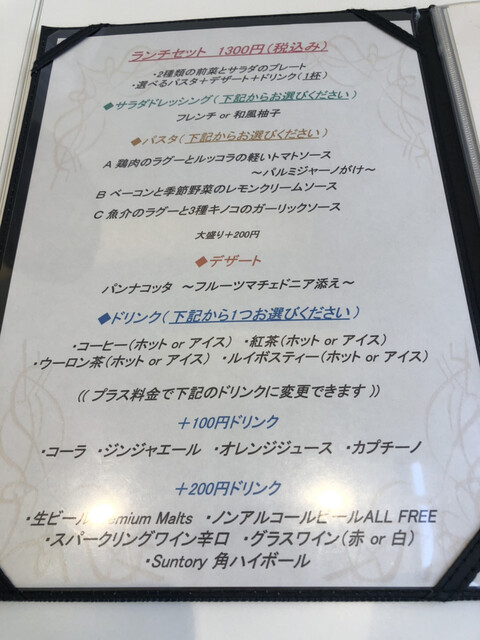 ランチセット 1300円(税込み)
・2種類の前菜とサラダのプレート
・選べるパスタ＋デザート＋ドリンク(1杯)
◆サラダドレッシング(下記からお選びください)
フレンチ or 和風柚子
◆パスタ(下記からお選びください)
A 鶏肉のラグーとルッコラの軽いトマトソース
～パルミジャーノがけ～
B ベーコンと季節野菜のレモンクリームソース
C 魚介のラグーと3種キノコのガーリックソース
大盛り＋200円
◆デザート
パンナコッタ ～フルーツマチェドニア添え～
◆ドリンク(下記から1つお選びください)
・コーヒー(ホット or アイス) ・紅茶(ホット or アイス)
・ウーロン茶(ホット or アイス) ・ルイボスティー(ホット or アイス)
(( プラス料金で下記のドリンクに変更できます ))
＋100円ドリンク
・コーラ ・ジンジャエール ・オレンジジュース ・カプチーノ
＋200円ドリンク
・生ビール Malts ・ノンアルコールビールALL FREE
・スパークリングワイン辛口 ・グラスワイン(赤 or 白)
・Suntory 角ハイボール